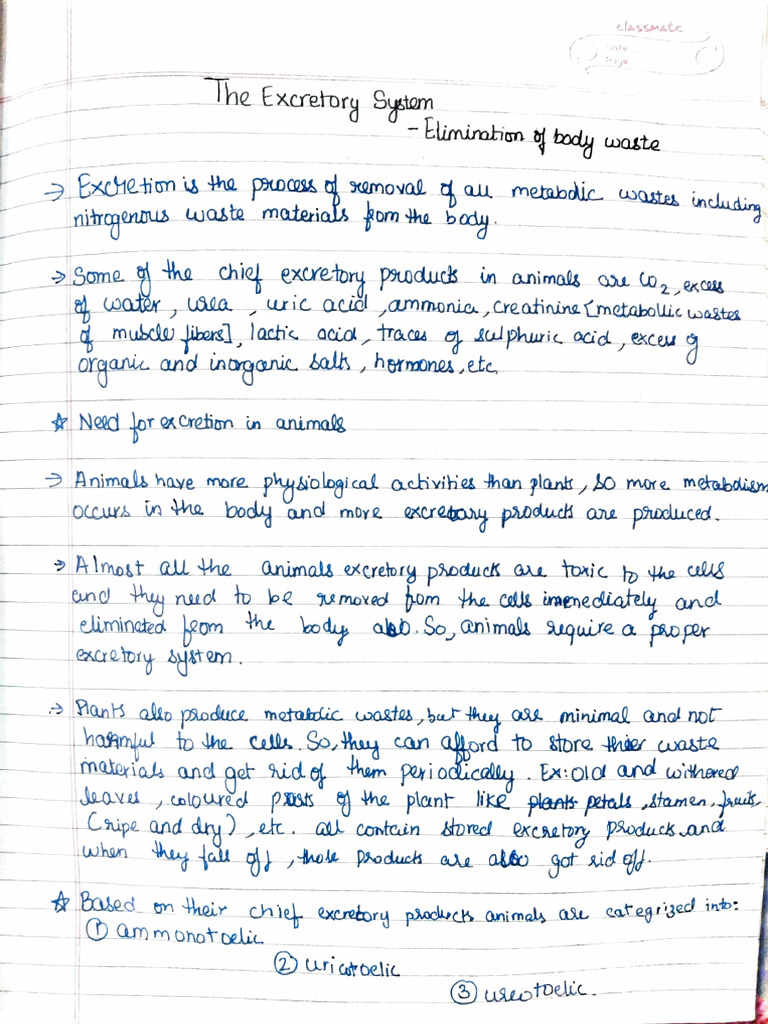 classmate
Date
Page
The Excretory System
- Elimination of body waste
→ Excretion is the process of removal of all metabolic wastes including
nitrogenous waste materials from the body.
→ Some of the chief excretory products in animals are CO₂, excess
of water, urea, uric acid, ammonia, creatinine [metabollic wastes
of muscle fibers], lactic acid, traces of sulphuric acid, excess of
organic and inorganic salts, hormones, etc.
☆ Need for excretion in animals
→ Animals have more physiological activities than plants, so more metabolism
occurs in the body and more excretory products are produced.
→ Almost all the animals excretory products are toxic to the cells
and they need to be removed from the cells immediately and
eliminated from the body also. So, animals require a proper
excretory system.
→ Plants also produce metabolic wastes, but they are minimal and not
harmful to the cells. So, they can afford to store thier waste
materials and get rid of them periodically. Ex: old and withered
leaves, coloured parts of the plant like plants petals, stamen, fruits
(ripe and dry), etc. all contain stored excretory products and
when they fall off, those products are also got rid off.
☆ Based on their chief excretory products animals are categrized into:
① ammonotoelic
② uricotoelic
③ ureotoelic.